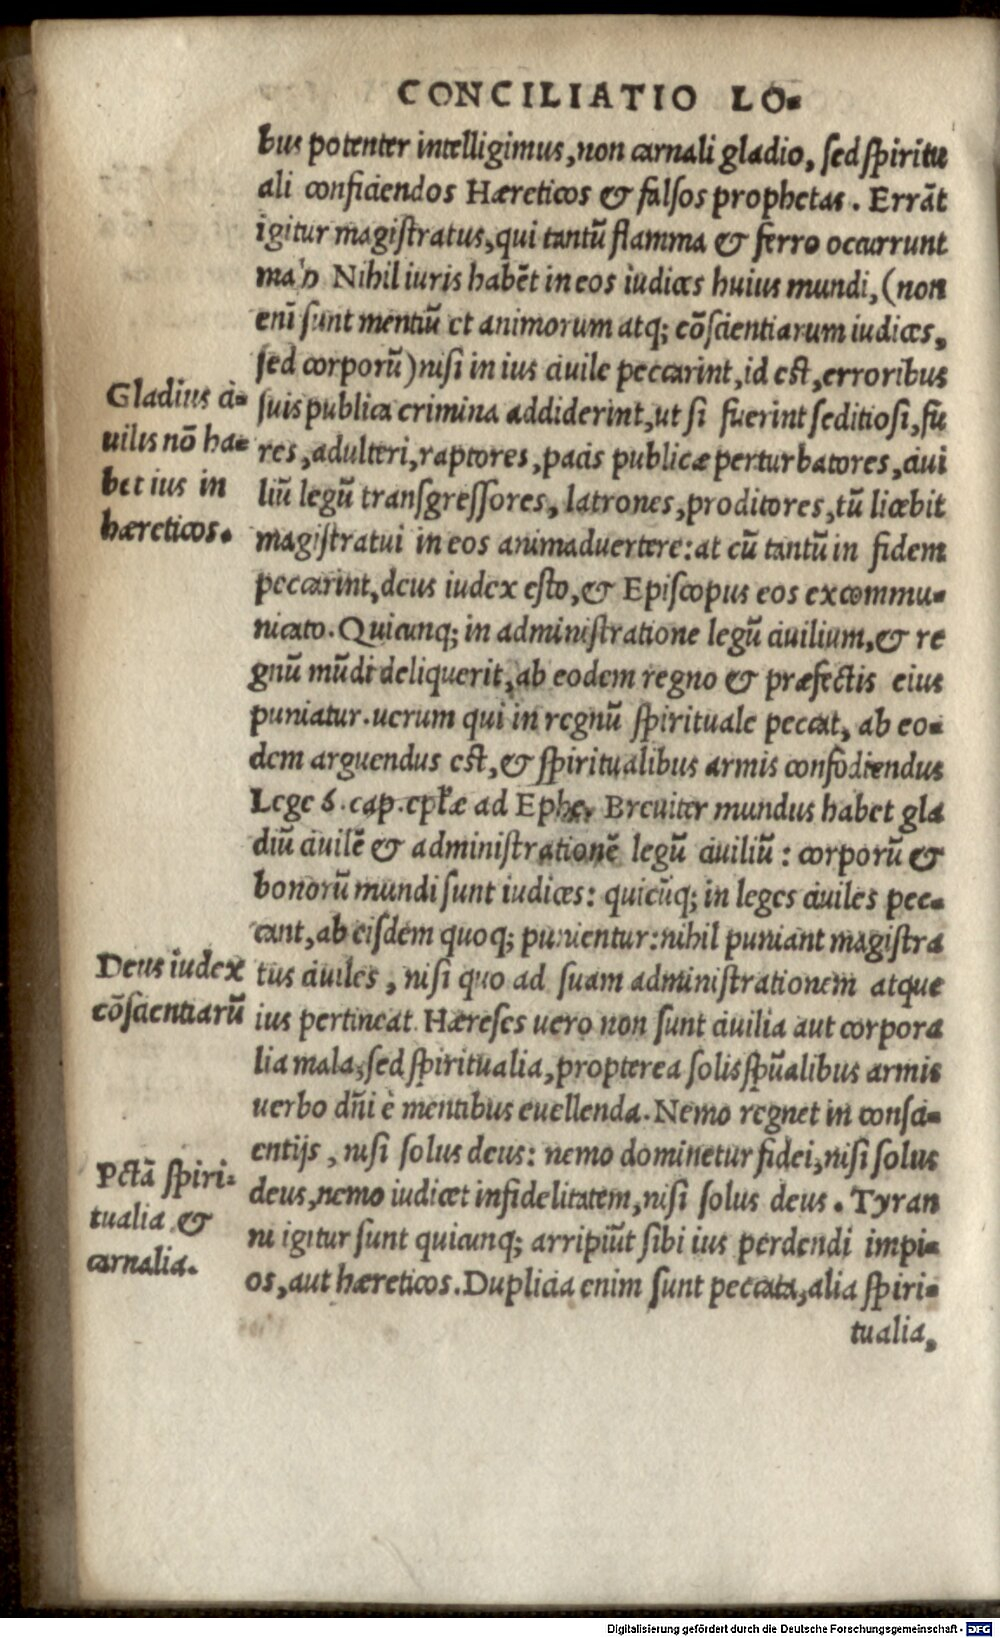 CONCILIATIO LO-
bus potenter intelligimus, non carnali gladio, sed spiritu
ali conficiendos Hæreticos & falsos prophetas. Errãt
igitur magistratus, qui tantũ flamma & ferro occurrunt
Nihil iuris habẽt in eos iudices huius mundi, (non
enĩ sunt mentiũ et animorum atq; cõscientiarum iudices,
sed corporũ) nisi in ius ciuile peccarint, id est, erroribus
Gladius ci-
uilis nõ ha-
bet ius in
hæreticos.
suis publica crimina addiderint, ut si fuerint seditiosi, fu
res, adulteri, raptores, pacis publicæ perturbatores, ciui
liũ legũ transgressores, latrones, proditores, tũ licebit
magistratui in eos animaduertere: at cũ tantũ in fidem
peccarint, deus iudex esto, & Episcopus eos excommu-
nicato. Quicunq; in administratione legũ ciuilium, & re
gnũ mũdi deliquerit, ab eodem regno & præfectis eius
puniatur. uerum qui in regnũ spirituale peccat, ab eo-
dem arguendus est, & spiritualibus armis confodiendus
Lege 6. cap. epłæ ad Ephe. Breuiter mundus habet gla
diũ ciuilẽ & administrationẽ legũ ciuiliũ: corporũ &
bonorũ mundi sunt iudices: quicũq; in leges ciuiles pec-
cant, ab eisdem quoq; punientur: nihil puniant magistra
Deus iudex
cõscientiarũ
tus ciuiles, nisi quo ad suam administrationem atque
ius pertineat. Hæreses uero non sunt ciuilia aut corpora
lia mala, sed spiritualia, propterea solis spũalibus armis
uerbo dñi è mentibus euellenda. Nemo regnet in consci-
entijs, nisi solus deus: nemo dominetur fidei, nisi solus
Pctã spiri-
tualia &
carnalia.
deus, nemo iudicet infidelitatem, nisi solus deus. Tyran
ni igitur sunt quicunq; arripiũt sibi ius perdendi impi-
os, aut hæreticos. Duplicia enim sunt peccata, alia spiri-
tualia,
Digitalisierung gefördert durch die Deutsche Forschungsgemeinschaft - DFG